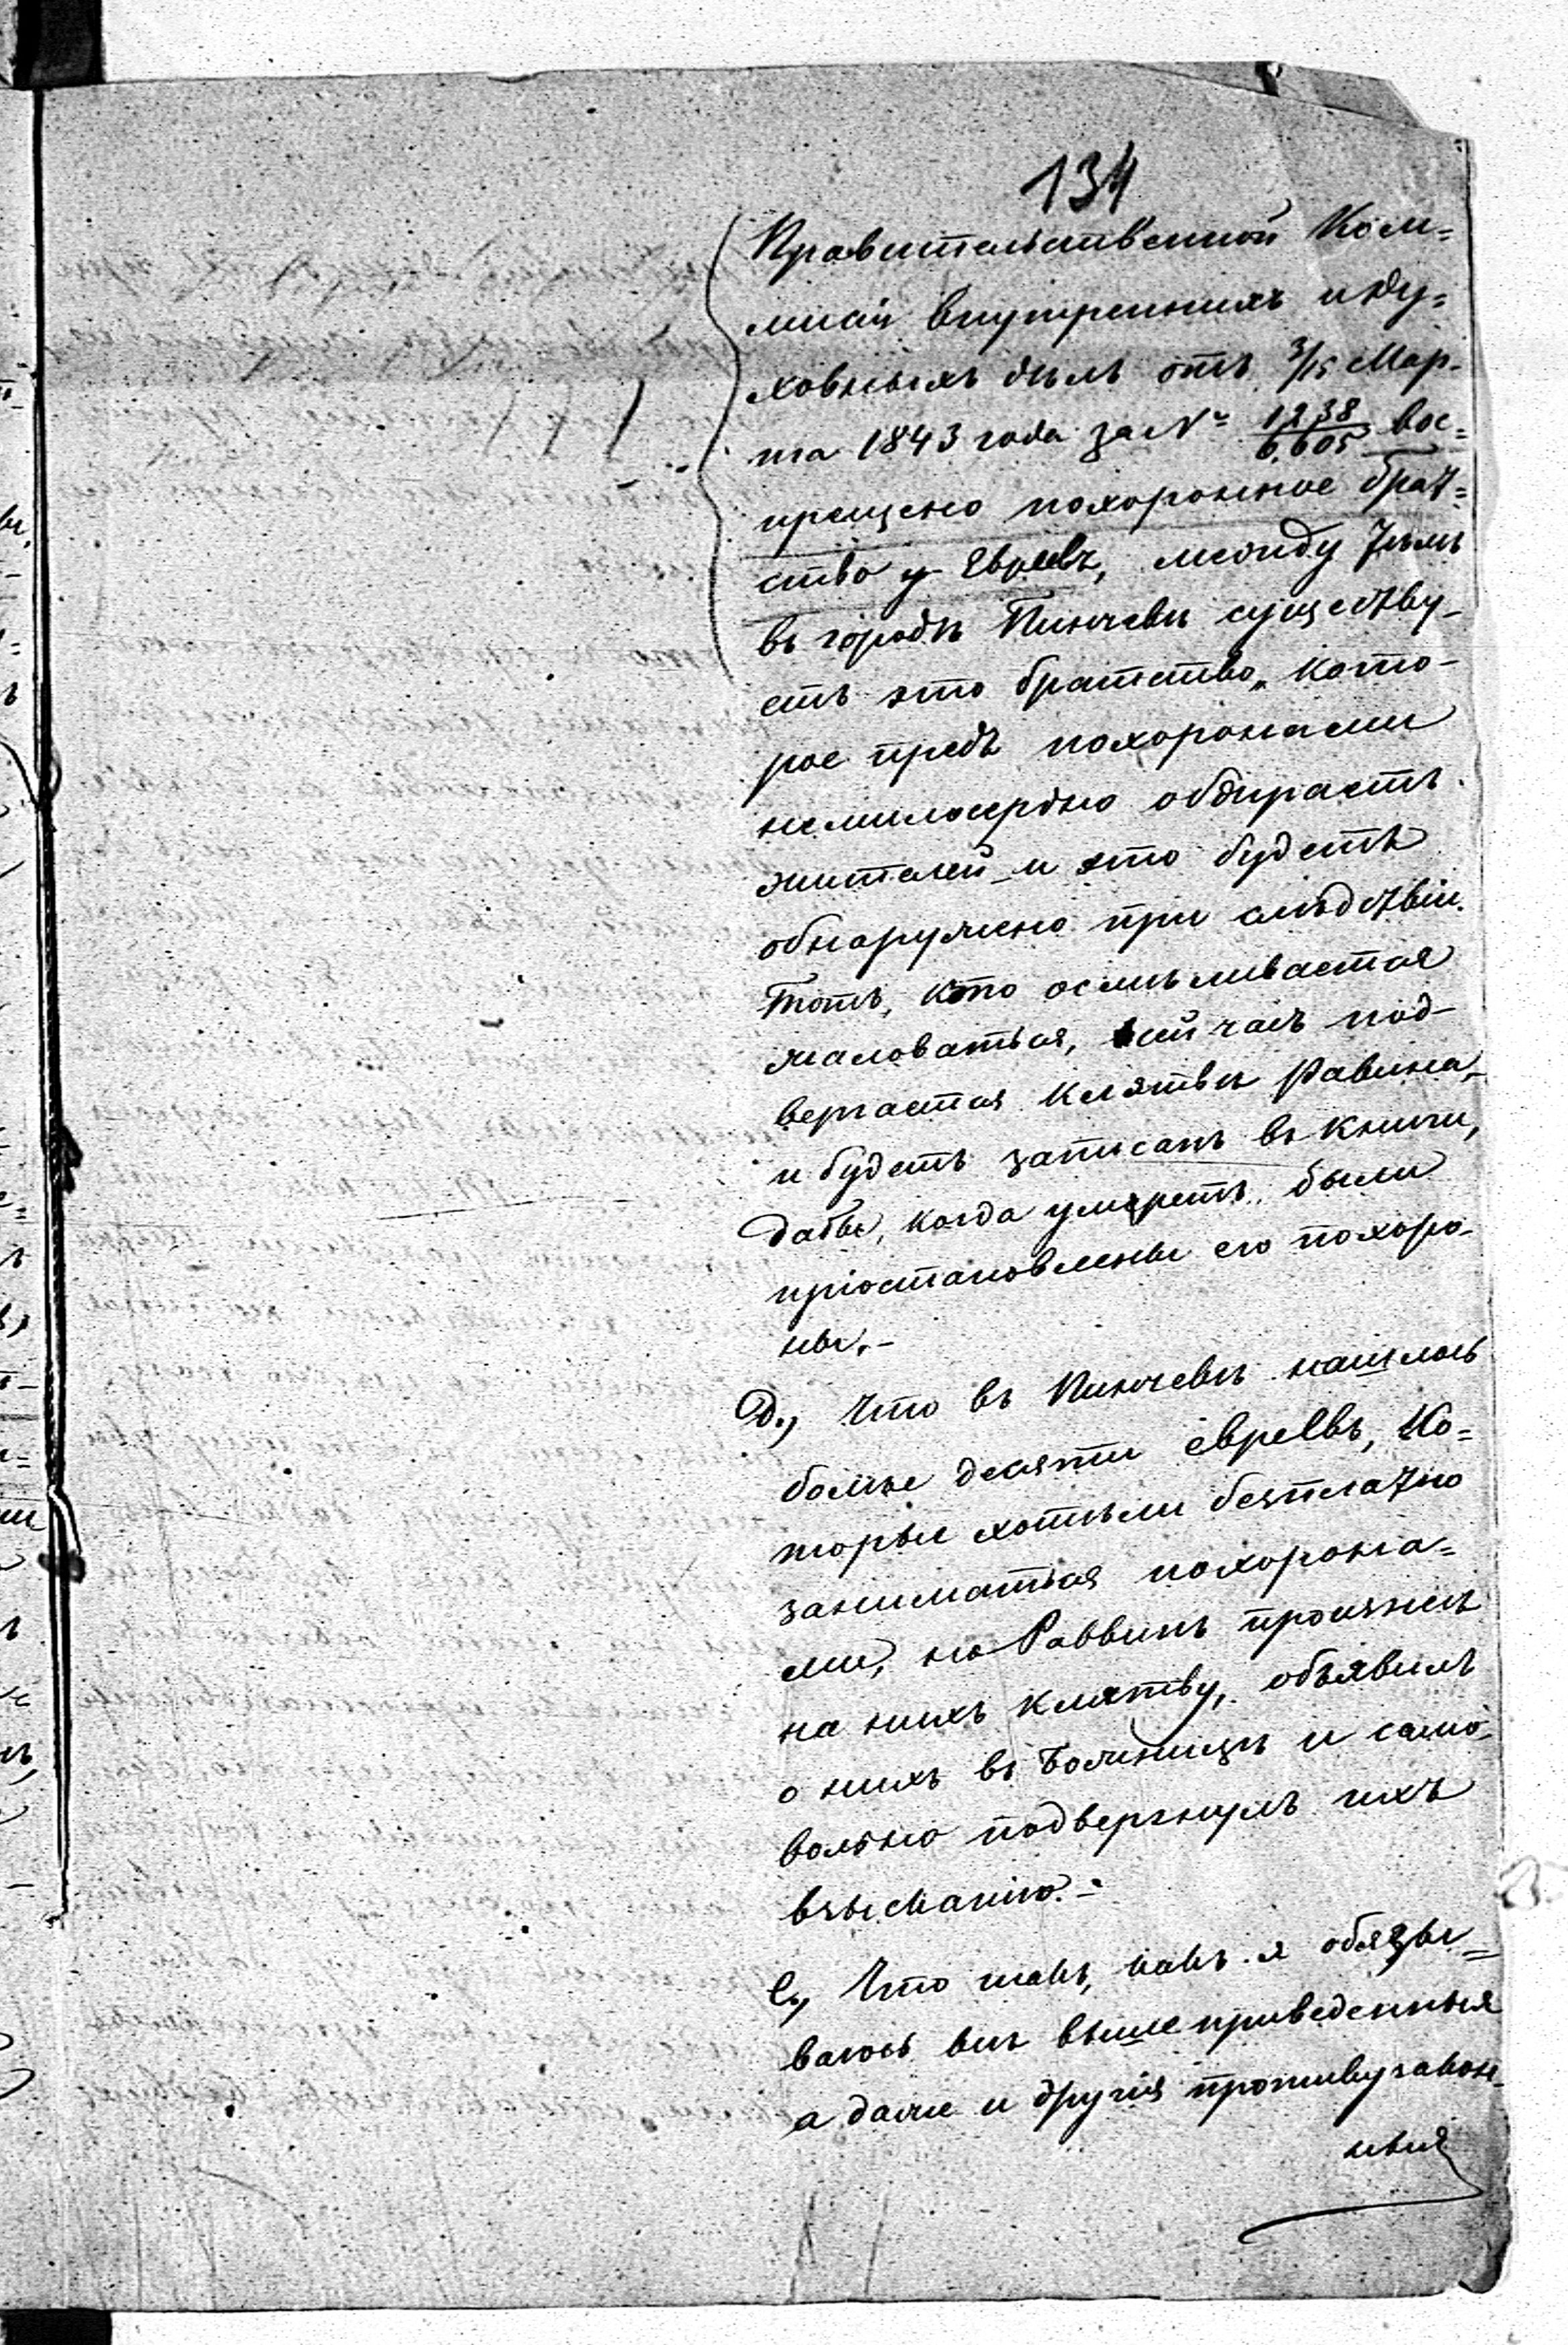 134
Правительственной Ком=
мисіи внутреннихъ и Ду=
ховныхъ дѣлъ отъ 3/15 Мар-
та 1843 года за № 1238/6,605 вос=
прещено похоронное брат=
ство у Евреевъ, между тѣмъ
въ городѣ Пинчевѣ существу-
етъ это братство, кото-
рое предъ похоронами
немилосердно обдираетъ
жителей и это будетъ
обнаружено при слѣдствіи.
Тотъ, кто осмѣливается
жаловаться, сей часъ под-
вергается клятвѣ Равина,
и будетъ записанъ въ книги,
дабы, когда умретъ, были
пріостановлены его похоро-
ны.-
D., Что въ Пинчевѣ нашлось
болѣе десяти евреевъ, ко=
торые хотѣли безплатно
заниматься похорона=
ми, но Раввинъ произнесъ
на нихъ клятву, объявилъ
о нихъ въ Божницѣ и само-
вольно подвергнулъ ихъ
взысканію.-
E., Что такъ, какъ я обязы=
ваюсь всѣ вышеприведенныя
а даже и другія противузакон-
ныя